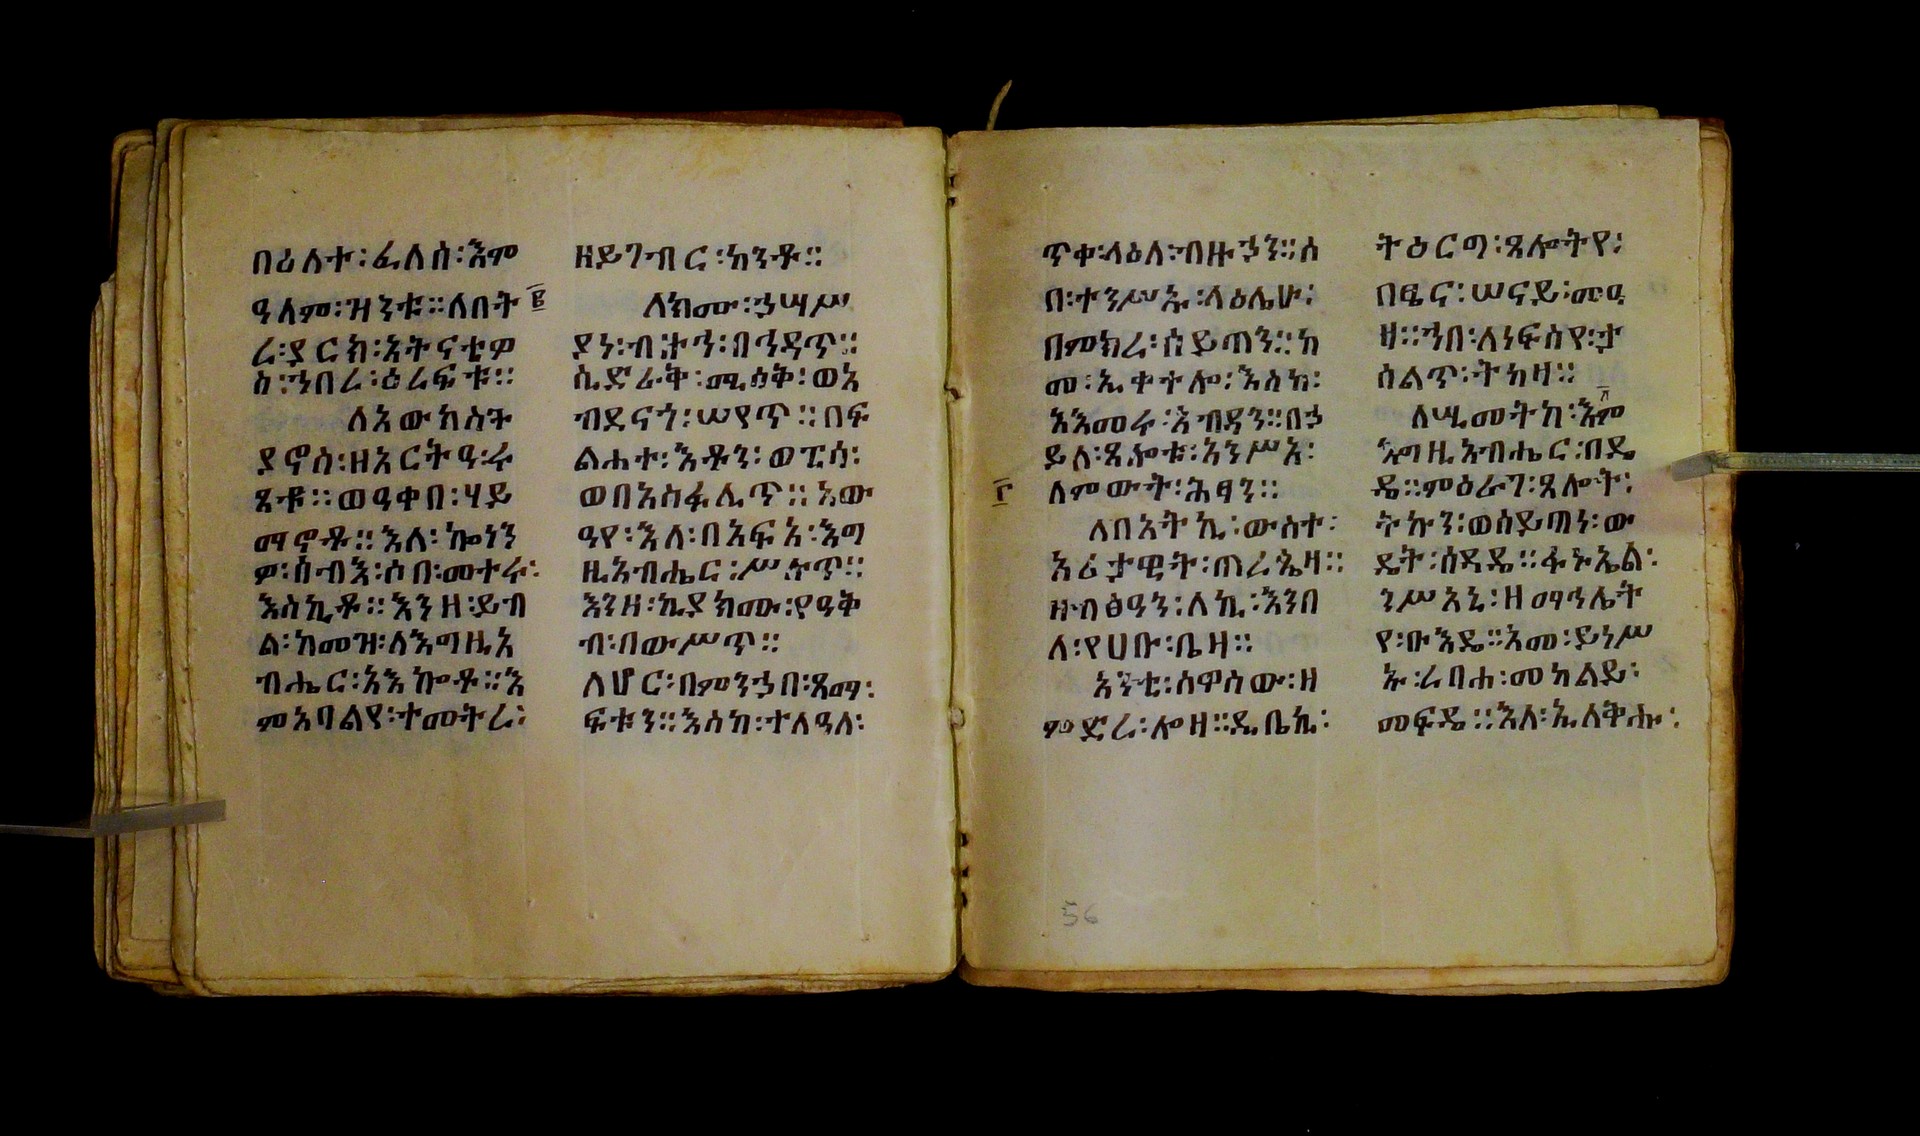 በዕለተ፡ፈለሰ፡እም
ዓለም፡ዝንቱ።ለበት
ሬ፡ያርክ፡አትናቴዎ
ስ፡ኀበረ፡ዕረፍቱ።
ለአውክስት
ያኖስ፡ዘአርትዓ፡ሩ
ጼቱ።ወዓቀበ፡ሃይ
ማኖቶ።እለ፡ኰነን
ዎ፡ሰብእ፡ሶበ፡መተሩ፡
እስኪቶ።እንዘ፡ይብ
ል፡ከመዝ፡ለእግዚአ
ብሔር፡አአኰቶ።እ
ምአባልየ፡ተመትረ፡
፪
ዘይገብር፡ከንቶ።
ለክሙ፡ኃሣሥ
ያነ፡ብታን፡በኀዳጥ።
ሲድራቅ፡ሚሳቅ፡ወአ
ብደናጎ፡ሠየጥ።በፍ
ልሐተ፡እቶን፡ወፒሳ፡
ወበአስፋሊጥ።ኢው
ዓየ፡እለ፡በአፍአ፡እግ
ዚአብሔር፡ሥሉጥ።
እንዘ፡ኪያክሙ፡የዓቅ
ብ፡በውሥጥ።
ለሆር፡በምንኃበ፡ጸማ፡
ፍቱን።እስከ፡ተለዓለ፡
ጥቀ፡ላዕለ፡ብዙኃን።ሰ
በ፡ተንሥኡ፡ላዕሌሁ፡
በምክረ፡ሰይጠን።ከ
መ፡ኢቀተሎ፡እስከ፡
አእመሩ፡አብዳን።በኃ
ይለ፡ጸሎቱ፡አንሥአ፡
ለምውት፡ሕፃን።
፫
ለበአትኪ፡ውስተ፡
አሪታዊት፡ጠረጴዛ።
ዘብፅዓን፡ለኪ፡እንበ
ለ፡የሀቡ፡ቤዛ።
አንቲ፡ሰዋስው፡ዘ
ምድረ፡ሎዛ።ዲቤኪ፡
ትዕርግ፡ጸሎትየ፡
በፄና፡ሠናይ፡መዓ
ዛ።ኀበ፡ለነፍስየ፡ታ
ሰልጥ፡ትካዛ።
ለሢመትከ፡እም
እግዚአብሔር፡በዴ
ዴ።ምዕራገ፡ጸሎት፡
ትኩን፡ወሰይጣነ፡ው
ዴት፡ሰዳዴ።ፋኑኤል፡
ንሥአኒ፡ዘማኅሌት
የ፡ቡእዴ።አመ፡ይነሥ
ኡ፡ረባሐ፡መካልይ፡
መፍዴ።እለ፡ኢለቅሑ፡
56